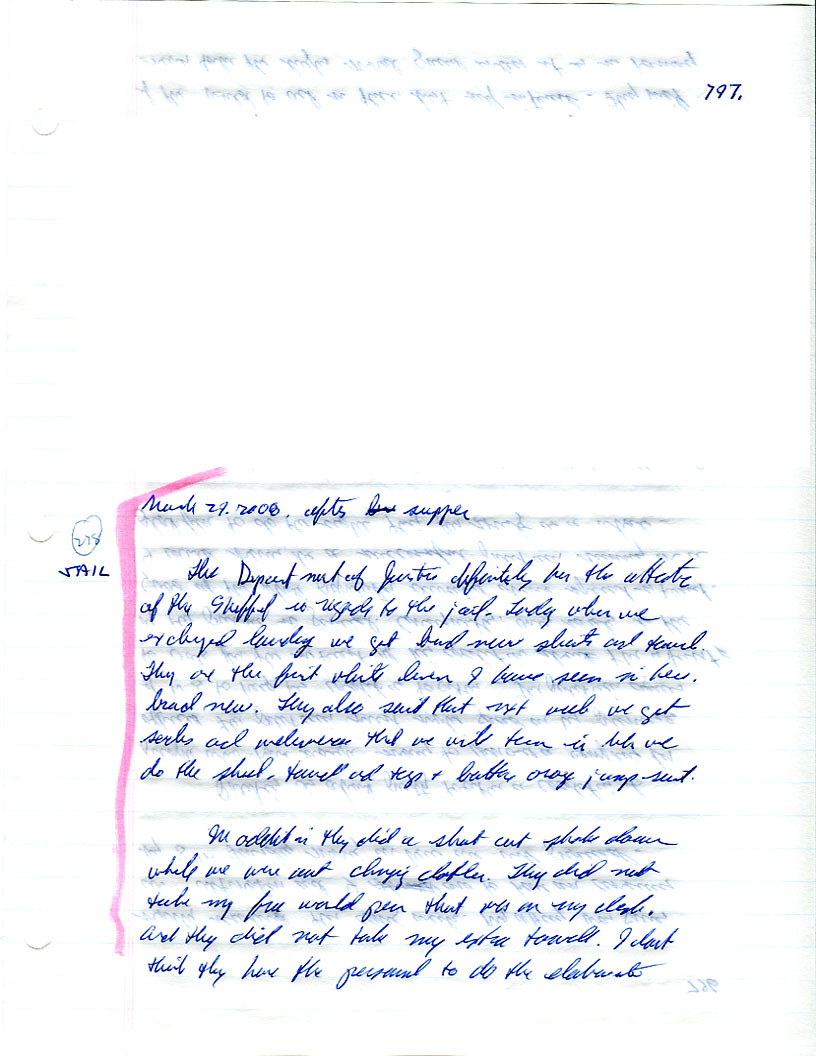 797.
March 29. 2008. after supper
228
JAIL
The Department of Justice definitely has the attention
of the Sheriff in regards to the jail. Today when we
exchanged laundry we got brand new sheets and towel.
They are the first white linen I have seen in here.
brand new. They also said that next week we get
socks and underwear that we will turn in when we
do the sheet, towel and tops + bottom orange jump suit.
In addition they did a short cut shake down
while we were out changing clothes. They did not
take my free world pen that was on my desk.
And they did not take my extra towels. I don't
think they have the personal to do the elaborate
786